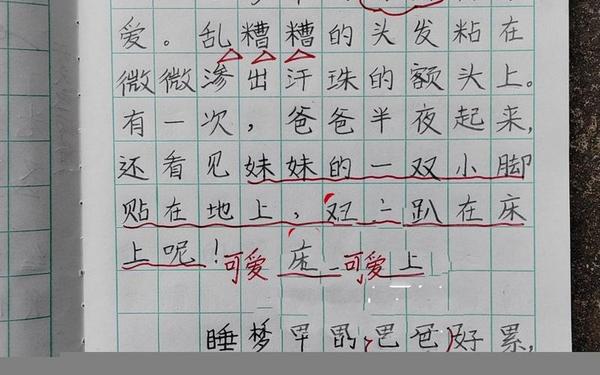 爱。乱糟糟的头发粘在
微微渗出汗珠的额头上。
有一次，爸爸半夜起来，
还看见妹妹的一双小脚
贴在地上，二趴在床
上呢！可爱 床 可爱 上
睡梦 好累，